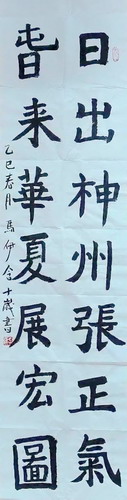 日出神州張正氣
旾来華夏展宏圖
乙巳春月 馬伊 十歲書